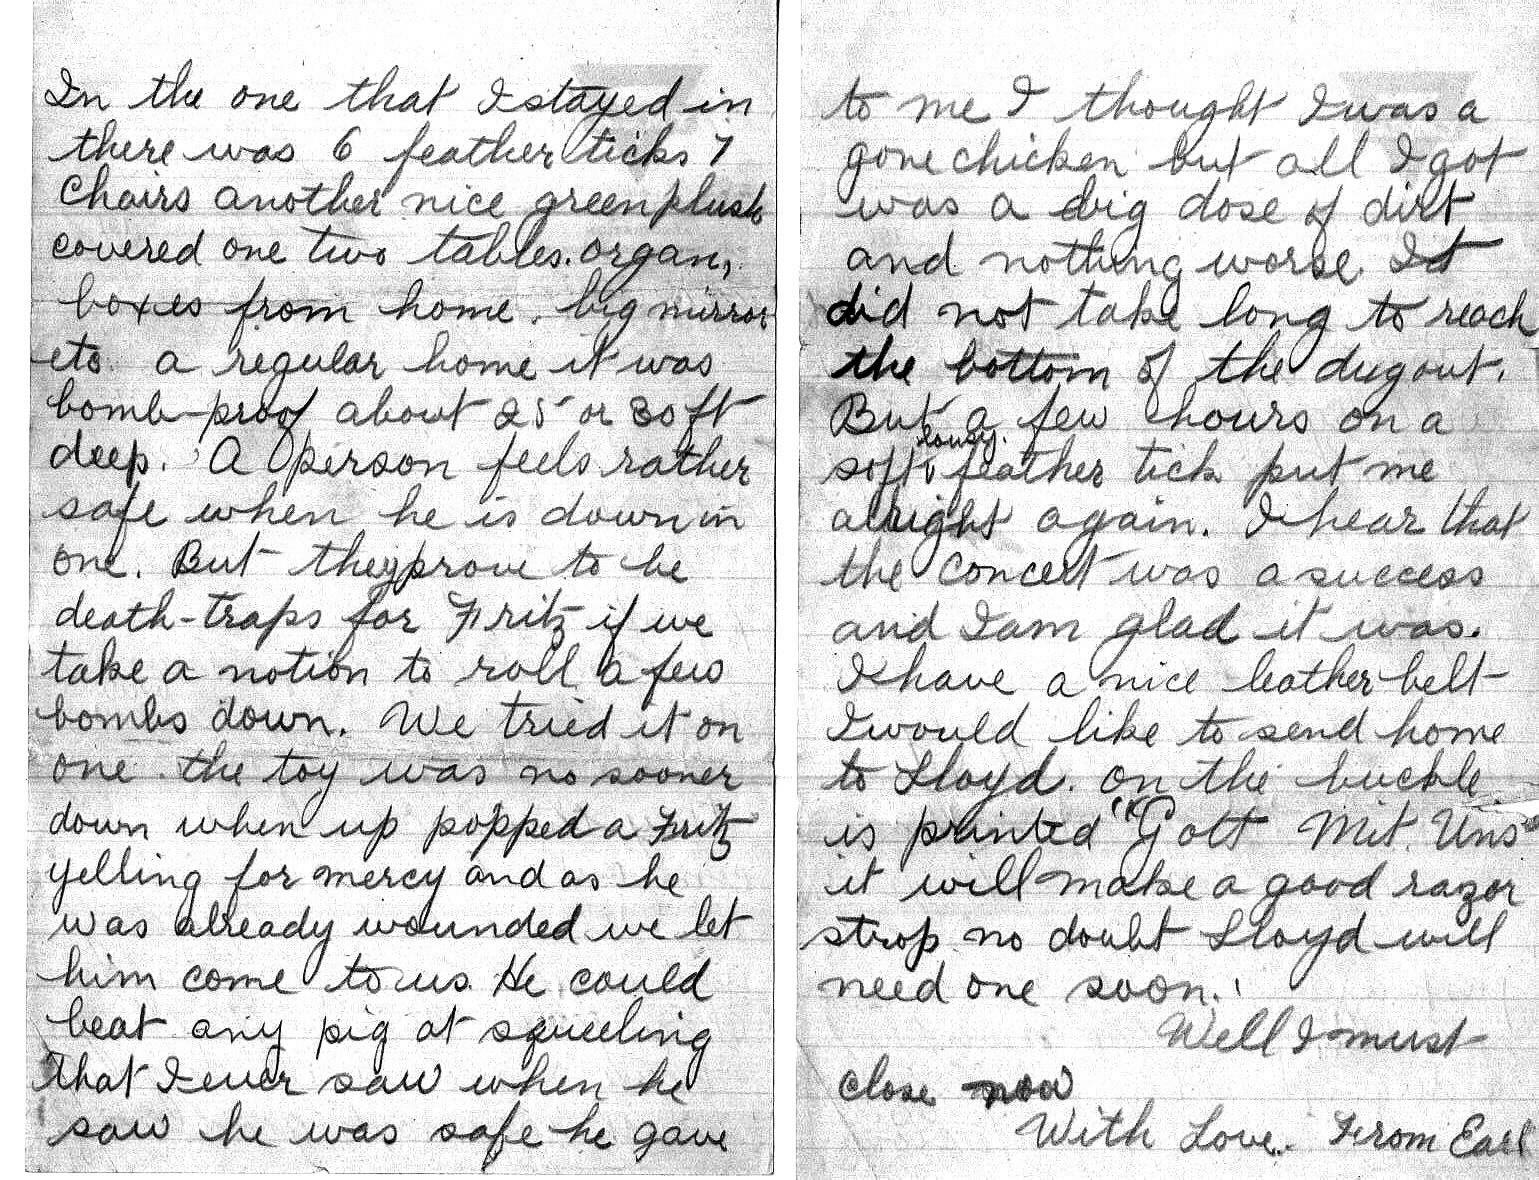 In the one that I stayed in
there was 6 feather ticks 7
chairs another nice green plush
covered one two tables. organ,
boxes from home. big mirror
etc. a regular home it was
bomb-proof about 25 or 30 ft
deep. A person feels rather
safe when he is down in
one. But they prove to be
death-traps for Fritz if we
take a notion to roll a few
bombs down. We tried it on
one. the toy was no sooner
down when up popped a Fritz
yelling for mercy and as he
was already wounded we let
him come to us. He could
beat any pig at squeeling
that I ever saw when he
saw he was safe he gave
to me I thought I was a
gone chicken but all I got
was a big dose of dirt
and nothing worse. It
did not take long to reach
the bottom of the dugout.
But a few hours on a
lousy.
soft feather tick put me
alright again. I hear that
the concert was a success
and I am glad it was.
I have a nice leather belt
I would like to send home
to Lloyd. on the buckle
is printed "Gott Mit Uns"
it will make a good razor
strop no doubt Lloyd will
need one soon.
Well I must
close now
With Love. From Earl